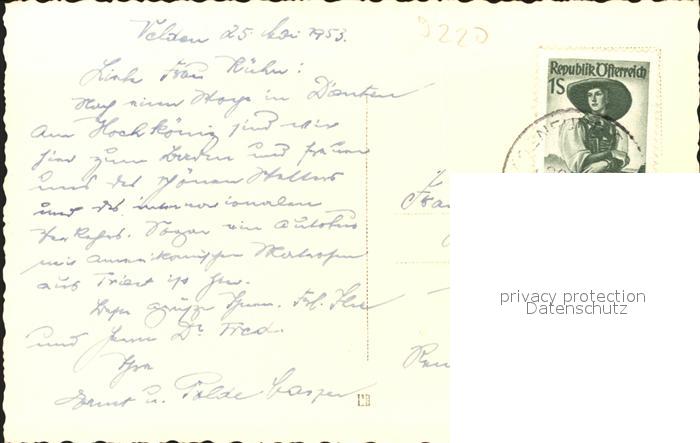 Velden 25. Mai 1953.
9220
Liebe Frau Kühn!
Nach einer Woche in Dienten
am Hochkönig sind wir
hier zum Baden und freuen
uns des schönen Wetters
und des internationalen
Verkehrs. Sogar ein Autobus
mit amerikanischen Matrosen
aus Triest ist hier.
grüsse Ihnen, Frl. Ilse
und Herrn Dr. Fred.
Ihre
Ernst u. Polde
Republik Österreich
1S
Frau
privacy protection
Datenschutz